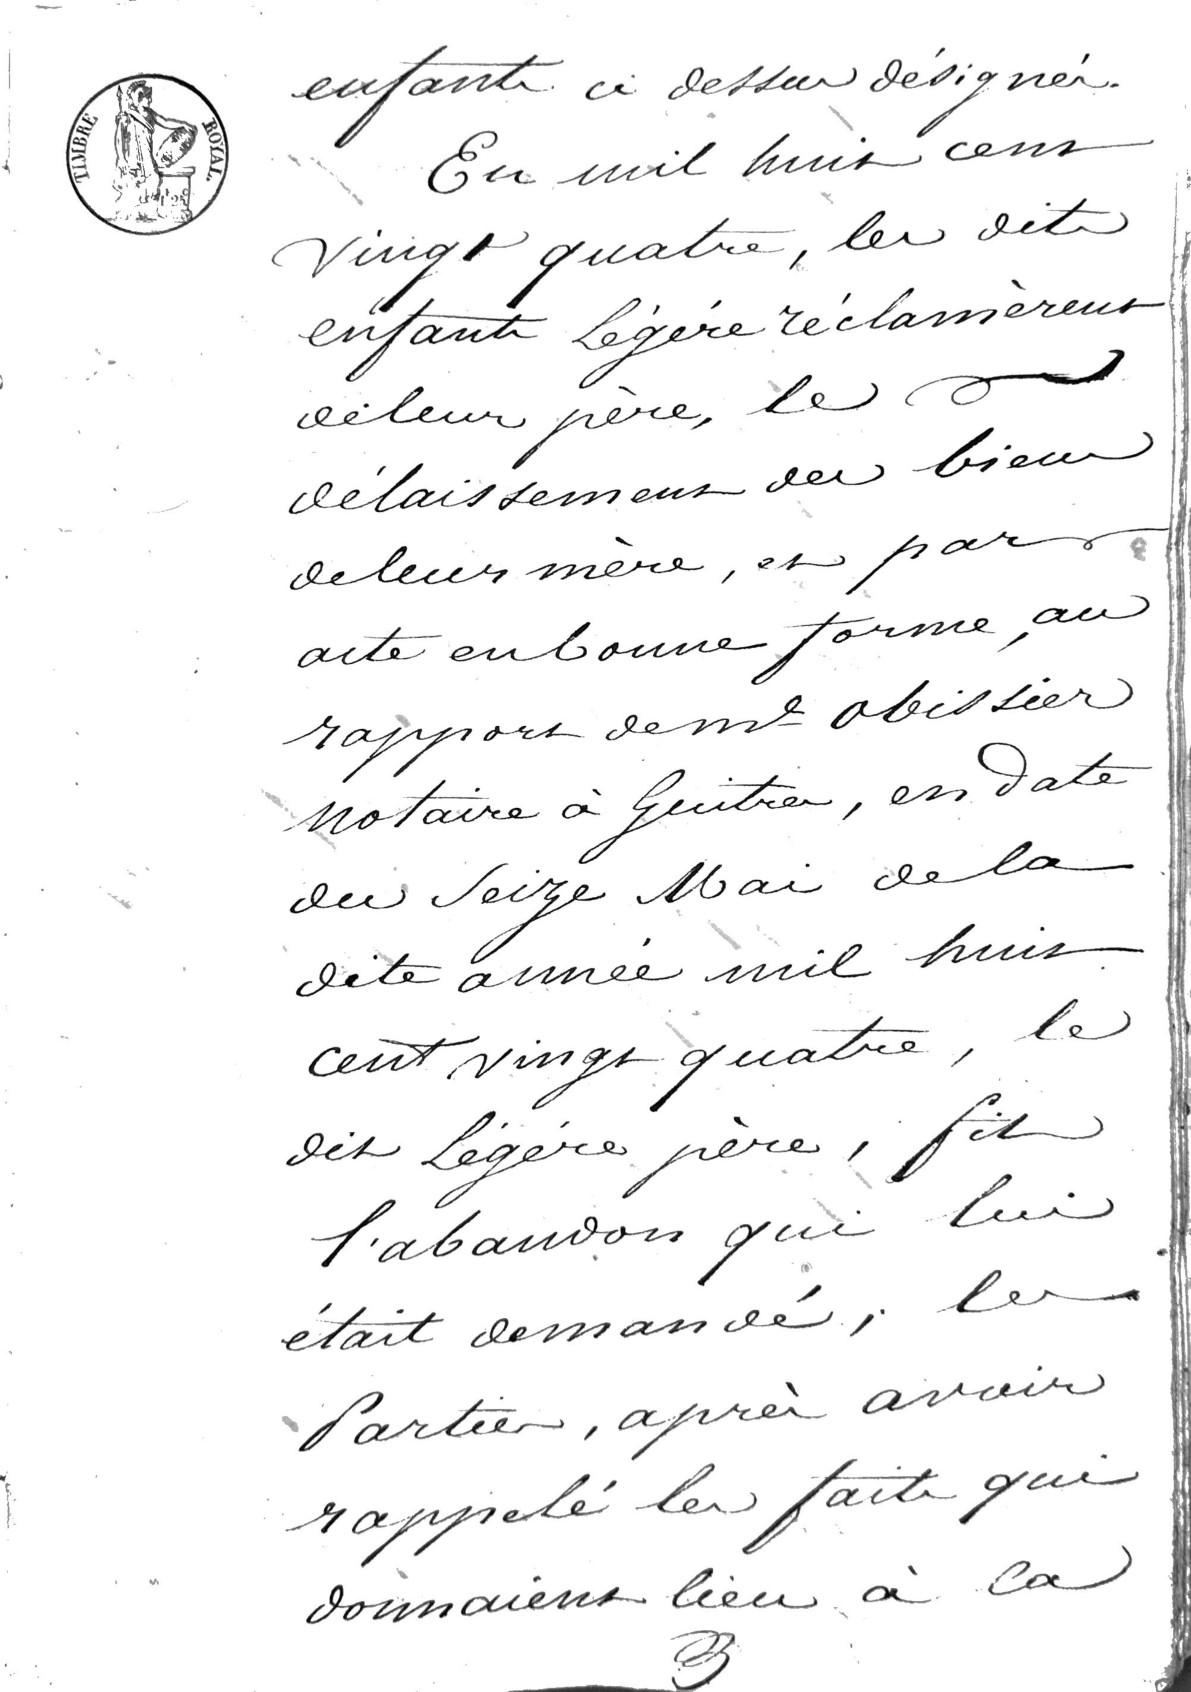 TIMBRE ROYAL.
enfants ci dessus désignés.
En mil huit cent
vingt quatre, les dits
enfants Légére réclamèrent
de leur père, le
délaissement des biens
de leur mère, et par
acte en bonne forme, au
rapport de Me Obissier
notaire à Guitres, en date
du Seize Mai de la
dite année mil huit
cent vingt quatre, le
dit Légére père, fit
l'abandon qui lui
était demandé; les
Parties, après avoir
rappelé les faits qui
donnaient lieu à la